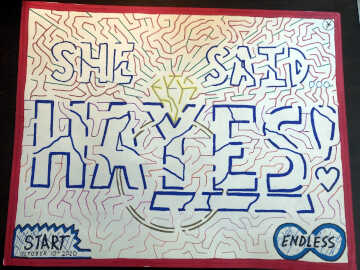 SHE SAID...
HAYES!
START
OCTOBER 10TH 2020
ENDLESS